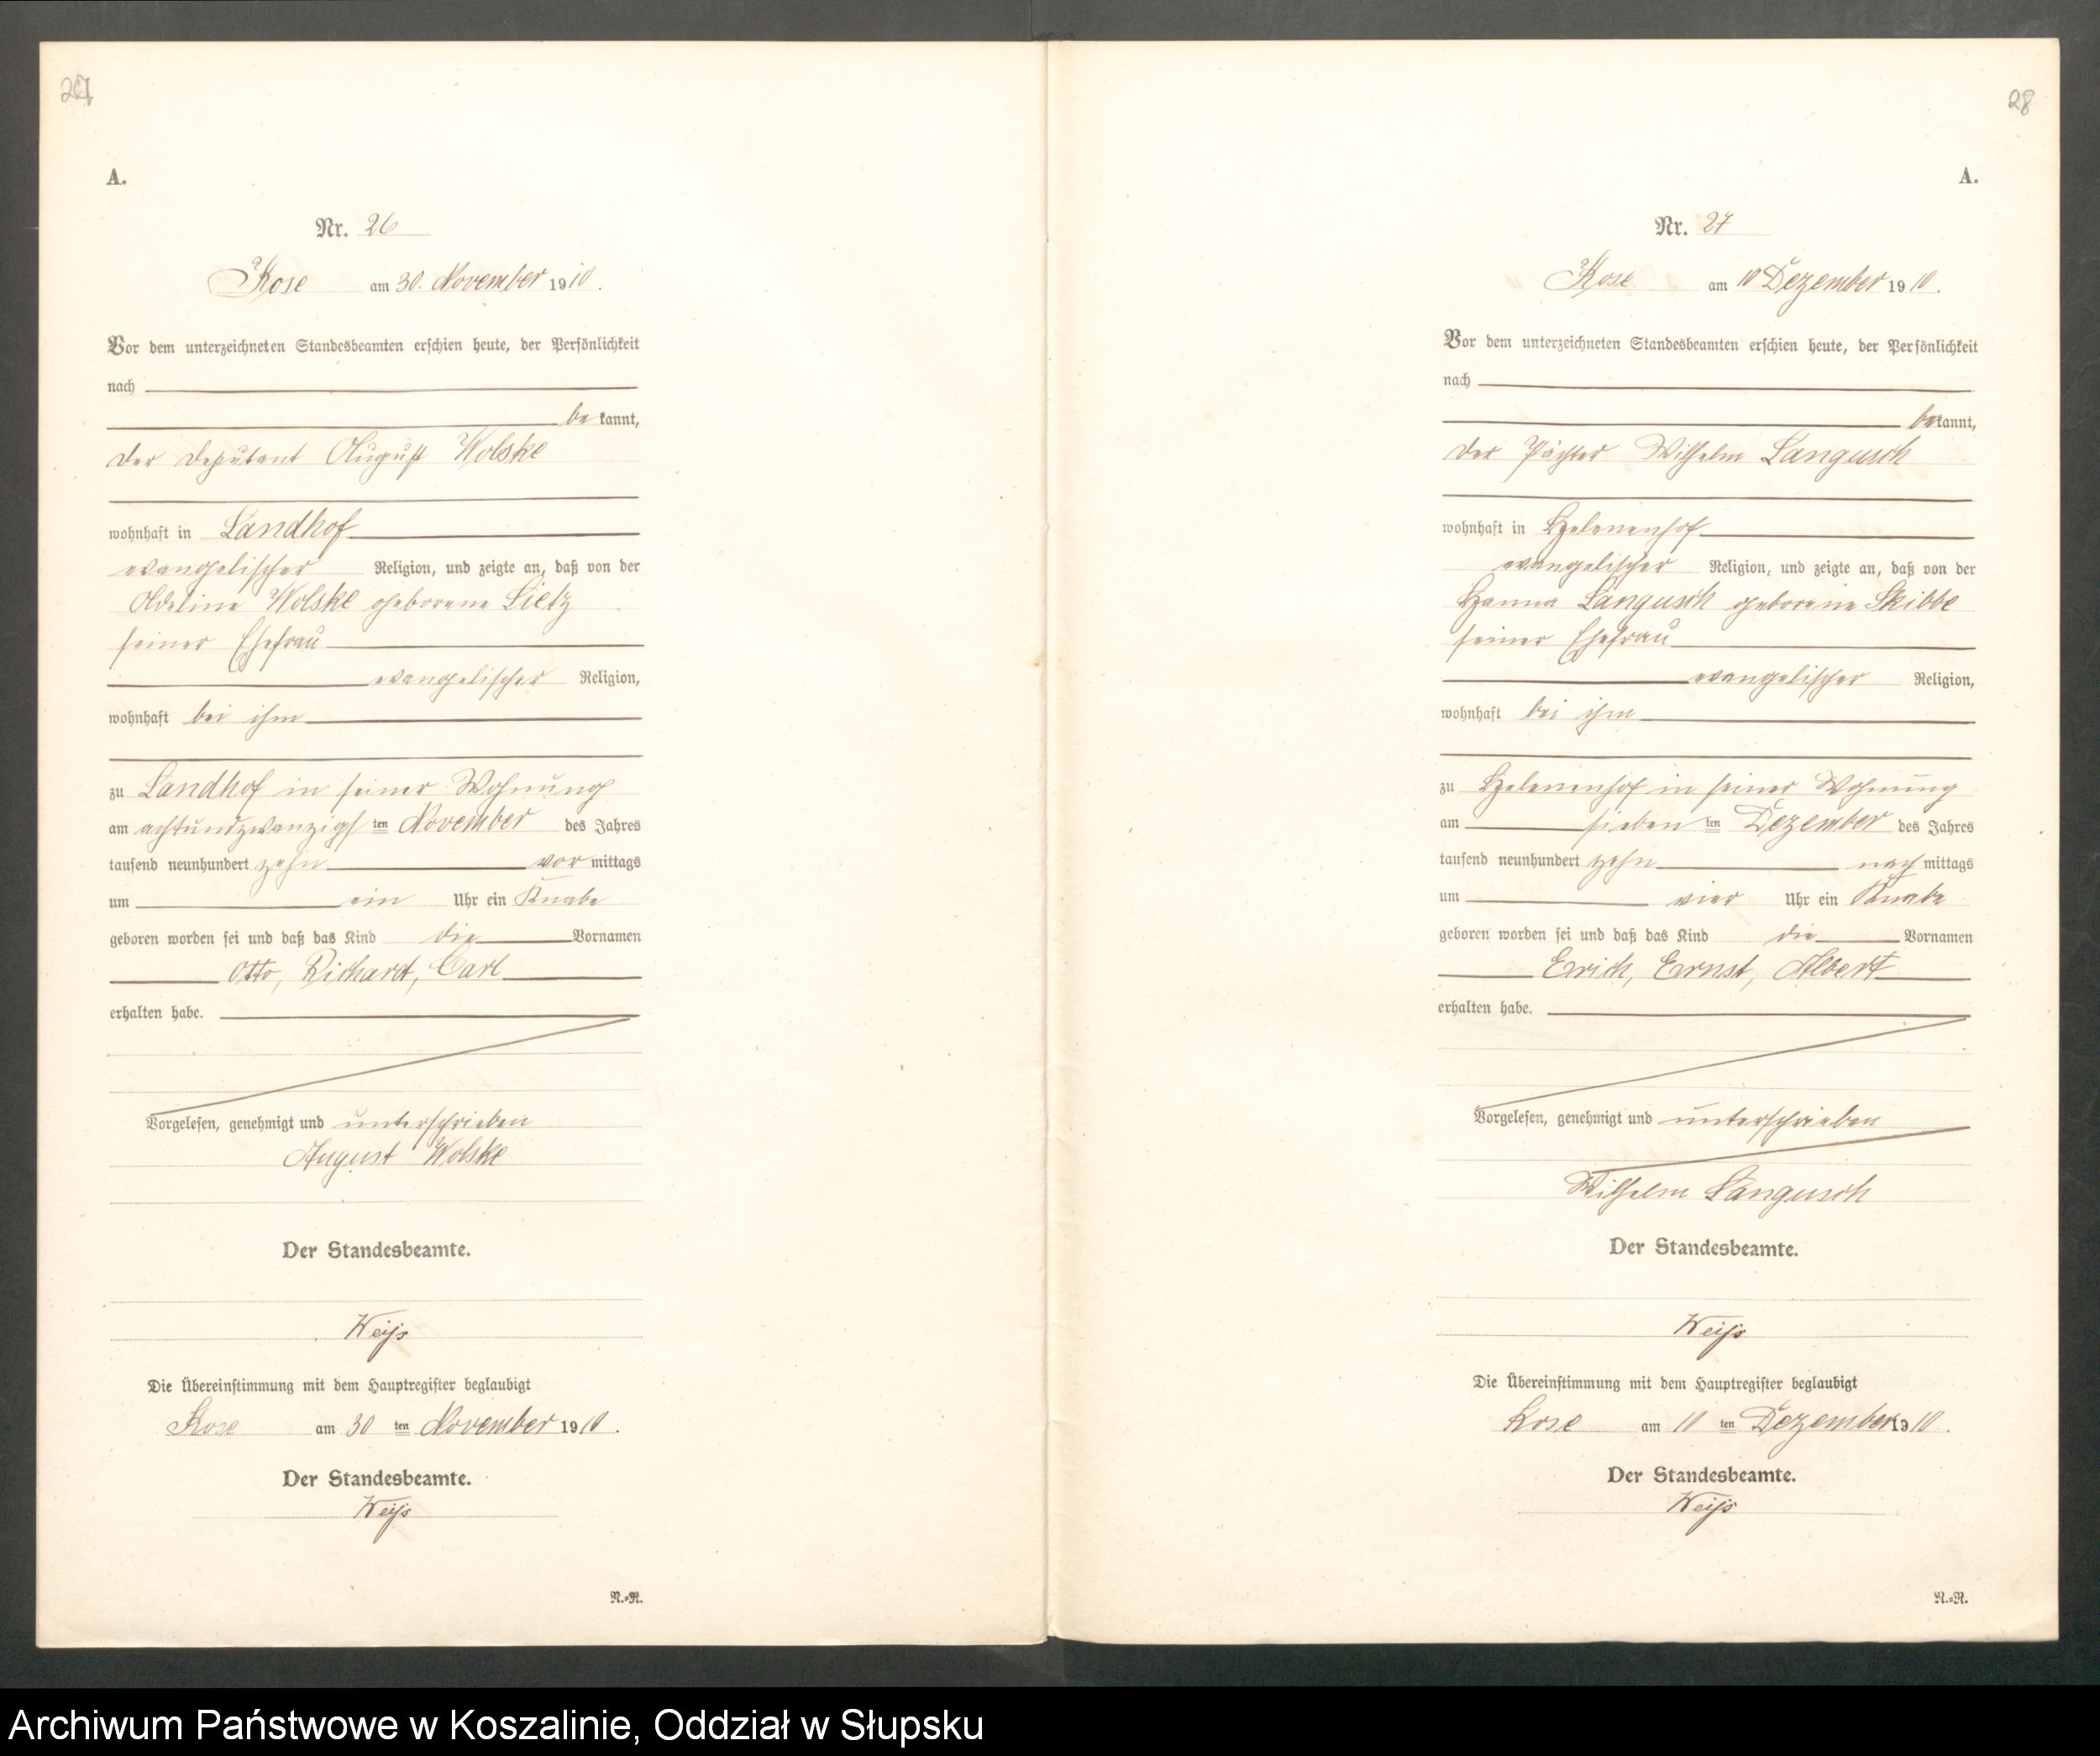 27
A.
Nr. 26
Kose am 30. November 1910.
Vor dem unterzeichneten Standesbeamten erschien heute, der Persönlichkeit
nach
be kannt,
der Deputant August Wolske
wohnhaft in Landhof
evangelischer Religion, und zeigte an, daß von der
Adeline Wolske geborene Lietz
seiner Ehefrau
evangelischer Religion,
wohnhaft bei ihm
zu Landhof in seiner Wohnung
am achtundzwanzigsten November des Jahres
tausend neunhundert zehn vor mittags
um ein Uhr ein Knabe
geboren worden sei und daß das Kind die Vornamen
Otto, Richard, Carl
erhalten habe.
Vorgelesen, genehmigt und unterschrieben
August Wolske
Der Standesbeamte.
Weiß
Die Übereinstimmung mit dem Hauptregister beglaubigt
Kose am 30 ten November 1910.
Der Standesbeamte.
Weiß
R.-R.
28
A.
Nr. 27
Kose am 10 Dezember 1910.
Vor dem unterzeichneten Standesbeamten erschien heute, der Persönlichkeit
nach
bekannt,
der Pächter Wilhelm Langusch
wohnhaft in Helenenhof
evangelischer Religion, und zeigte an, daß von der
Hanna Langusch geborene Skibbe
seiner Ehefrau
evangelischer Religion,
wohnhaft bei ihm
zu Helenenhof in seiner Wohnung
am sieben ten Dezember des Jahres
tausend neunhundert zehn nach mittags
um vier Uhr ein Knabe
geboren worden sei und daß das Kind die Vornamen
Erich, Ernst, Albert
erhalten habe.
Vorgelesen, genehmigt und unterschrieben
Wilhelm Langusch
Der Standesbeamte.
Weiß
Die Übereinstimmung mit dem Hauptregister beglaubigt
Kose am 10 ten Dezember 1910.
Der Standesbeamte.
Weiß
R.-R.
Archiwum Państwowe w Koszalinie, Oddział w Słupsku